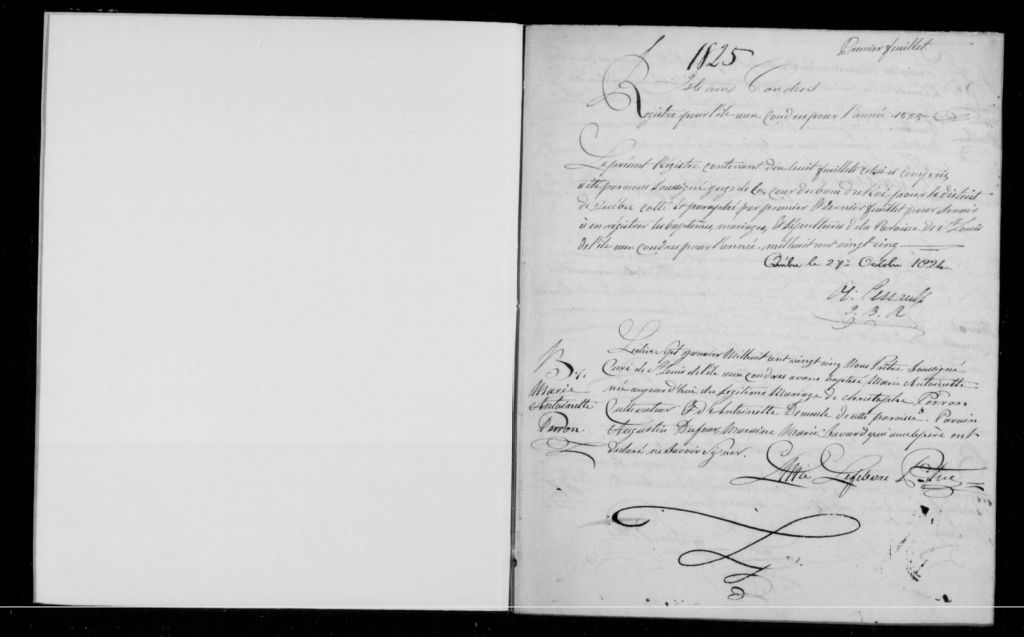 Premier feuillet.
1825
Isle aux Coudres
Registre pour l'ile aux Coudres pour l'année 1825
Le présent Registre contenant dix huit feuillets celui ci compris
a été par nous Soussigné juge de la cour du banc du Roi pour le district
de Québec cotté et paraphé par premier et dernier feuillet pour servir
à enregistrer les baptemes, mariages, et sépultures de la Paroisse de St. Louis
de l'ile aux coudres pour l'année mil huit cent vingt cinq
Québec le 27 Octobre 1824
J. B. R
B1.
Marie
Antoinette
Perron.
Le dix Sept janvier Mil huit cent vingt cinq Nous Prêtre Soussigné
Curé de St. Louis de l'ile aux coudres avons baptisé Marie Antoinette
née aujourd'hui du légitime Mariage de Christophe Perron
Cultivateur et de Antoinette Demeule de cette paroisse. Parain
Augustin Dufour, Maraine Marie Savard qui avec le père ont
déclaré ne Savoir Signer.
Lefebvre Ptre